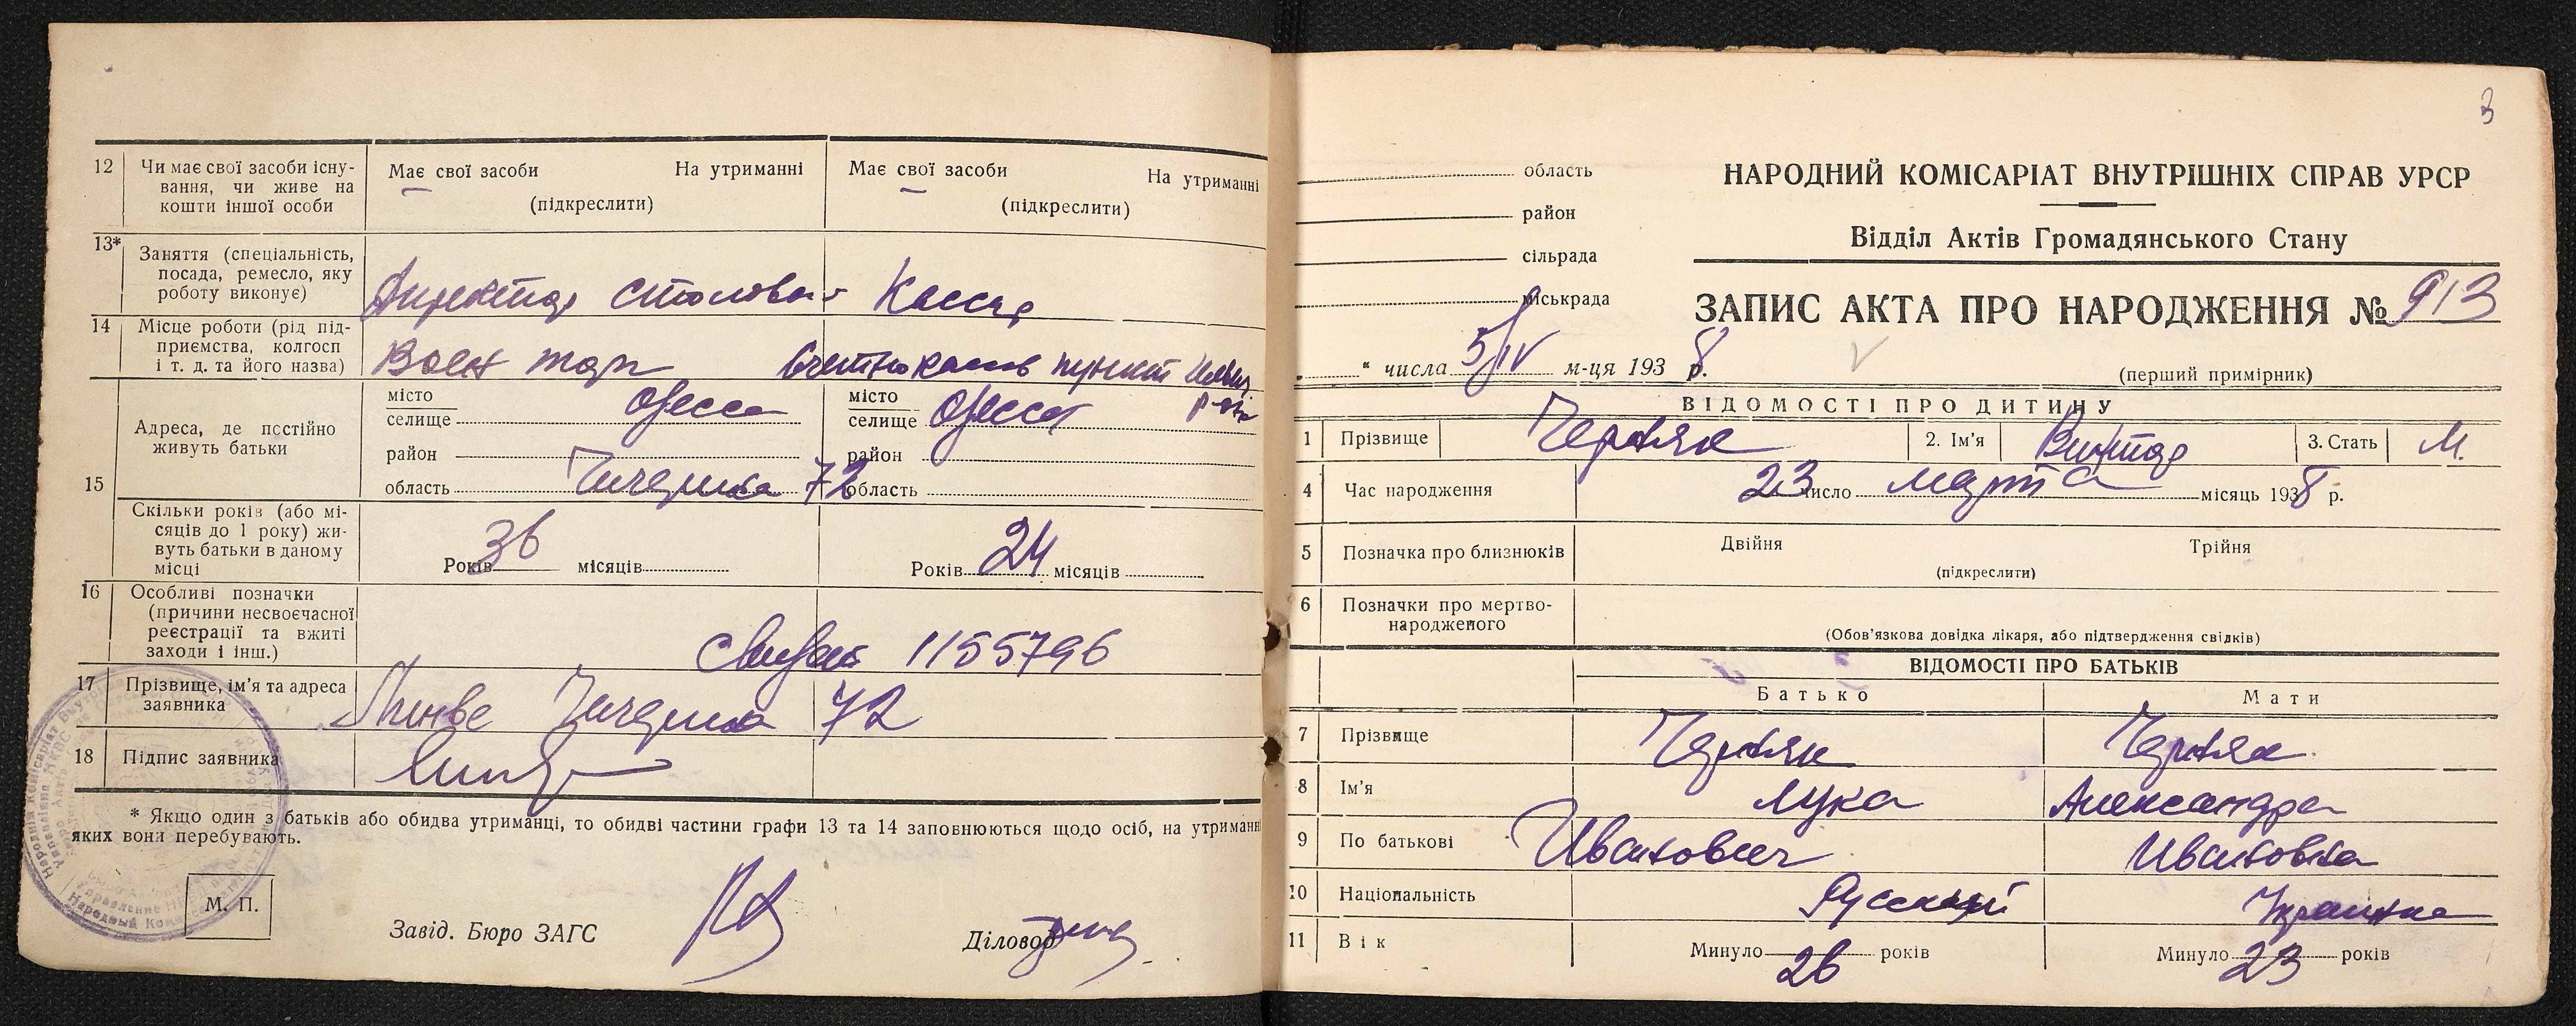 12 Чи має свої засоби існу-
вання, чи живе на
кошти іншої особи
Має свої засоби На утриманні
(підкреслити)
Має свої засоби На утриманні
(підкреслити)
13* Заняття (спеціальність,
посада, ремесло, яку
роботу виконує)
Директор столовой Кассир
14 Місце роботи (рід під-
приємства, колгосп
і т. д. та його назва)
Воен торг пункт
15 Адреса, де постійно
живуть батьки
місто
селище Одесса
район
область Чичерина 72
місто
селище Одесса
район
область
Скільки років (або мі-
сяців до 1 року) жи-
вуть батьки в даному
місці
Років 36 місяців
Років 24 місяців
16 Особливі позначки
(причини несвоєчасної
реєстрації та вжиті
заходи і інш.)
1155796
17 Прізвище, ім'я та адреса
заявника
Чичерина 72
18 Підпис заявника
* Якщо один з батьків або обидва утриманці, то обидві частини графи 13 та 14 заповнюються щодо осіб, на утриманні
яких вони перебувають.
М. П.
Завід. Бюро ЗАГС
Діловод
3
область
район
сільрада
міськрада
НАРОДНИЙ КОМІСАРІАТ ВНУТРІШНІХ СПРАВ УРСР
Відділ Актів Громадянського Стану
ЗАПИС АКТА ПРО НАРОДЖЕННЯ № 913
" числа 5/IV м-ця 1938 р.
(перший примірник)
ВІДОМОСТІ ПРО ДИТИНУ
1 Прізвище Черняк 2. Ім'я Виктор 3. Стать М.
4 Час народження 23 число марта місяць 1938 р.
5 Позначка про близнюків Двійня Трійня
(підкреслити)
6 Позначки про мертво-
народженого
(Обов'язкова довідка лікаря, або підтвердження свідків)
ВІДОМОСТІ ПРО БАТЬКІВ
Батько Мати
7 Прізвище Черняк Черняк
8 Ім'я Лука Александра
9 По батькові Иванович Ивановна
10 Національність Русский Украинка
11 Вік Минуло 26 років Минуло 23 років